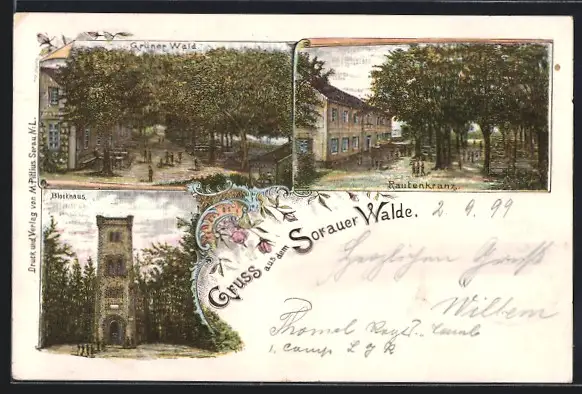 Grüner Wald.
Rautenkranz.
Blockhaus.
Druck und Verlag von M. Pittius Sorau N.-L.
Gruss aus dem Sorauer Walde.
2 9 99
Herzlichen Gruß
Willem
Thomal
1. Comp L J R